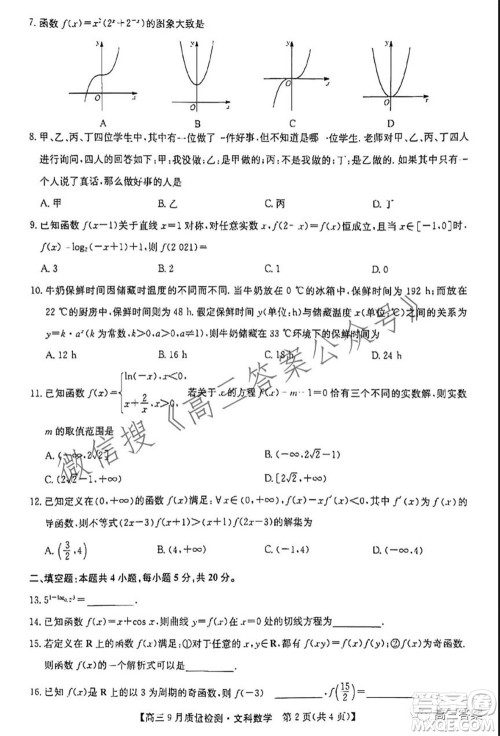 7. 函数 f(x)=x²(2ˣ+2⁻ˣ)的图象大致是
y y y y
O x O x O x O x
A B C D
8. 甲、乙、丙、丁四位学生中,其中一位做了一件好事,但不知道是哪一位学生. 老师对甲、乙、丙、丁四
人进行询问,四人的回答如下:甲:我没有做;乙:是甲做的;丙:不是我做的;丁:是乙做的. 若其中只有一
个人说了真话,那么做好事的人是
A. 甲 B. 乙 C. 丙 D. 丁
9. 已知函数 f(x−1)关于直线 x=1 对称,对任意实数 x,f(2−x)=f(x)恒成立,且当 x∈[−1,0]时,
f(x)=log₂(−x+1)+1,则 f(2 021)=
A. 3 B. 2 C. 1 D. 0
10. 牛奶保鲜时间因储藏时温度的不同而不同. 当牛奶放在 0 ℃的冰箱中,保鲜时间为 192 h,而放在
22 ℃的厨房中,保鲜时间为 48 h. 假定保鲜时间 y(单位:h)与储藏温度 x(单位:℃)之间的关系为
k>0,a>0,且a≠1),则牛奶储藏在 33 ℃环境下的保鲜时间为
A. 12 h B. 16 h C. 18 h D. 24 h
11. 已知函数 f(x)={ln(−x),x<0, x+2/x,x>0, 若关于 x 的方程 f(x)−m−1=0 恰有三个不同的实数解,则实数
m 的取值范围是
A. (−∞,2√2) B. (−∞,2√2−1)
C. (2√2−1,+∞) D. [2√2−1,+∞)
12. 已知定义在(0,+∞)的函数 f(x)满足:∀x∈(0,+∞),f(x)+xf′(x)<0,其中 f′(x)为 f(x)的
导函数,则不等式(2x−3)f(x+1)>(x+1)f(2x−3)的解集为
A. (3/2,4) B. (4,+∞) C. (−1,4) D. (−∞,4)
二、填空题:本题共 4 小题,每小题 5 分,共 20 分.
14. 已知函数 f(x)=x+cos x,则曲线 y=f(x)在点 处的切线方程为
15. 若定义在 R 上的函数 f(x)满足:①对于任意的 x,y∈R,都有 f(xy)=f(x)f(y);②f(x)为奇函数,
则函数 f(x)的一个解析式可以是
16. 已知函数 f(x)满足 f(x−3)= 为奇函数,则 f(15/2)=
【高三9月质量检测·文科数学 第 2 页(共 4 页)】
微信搜《高三答案公众号》
高三答案